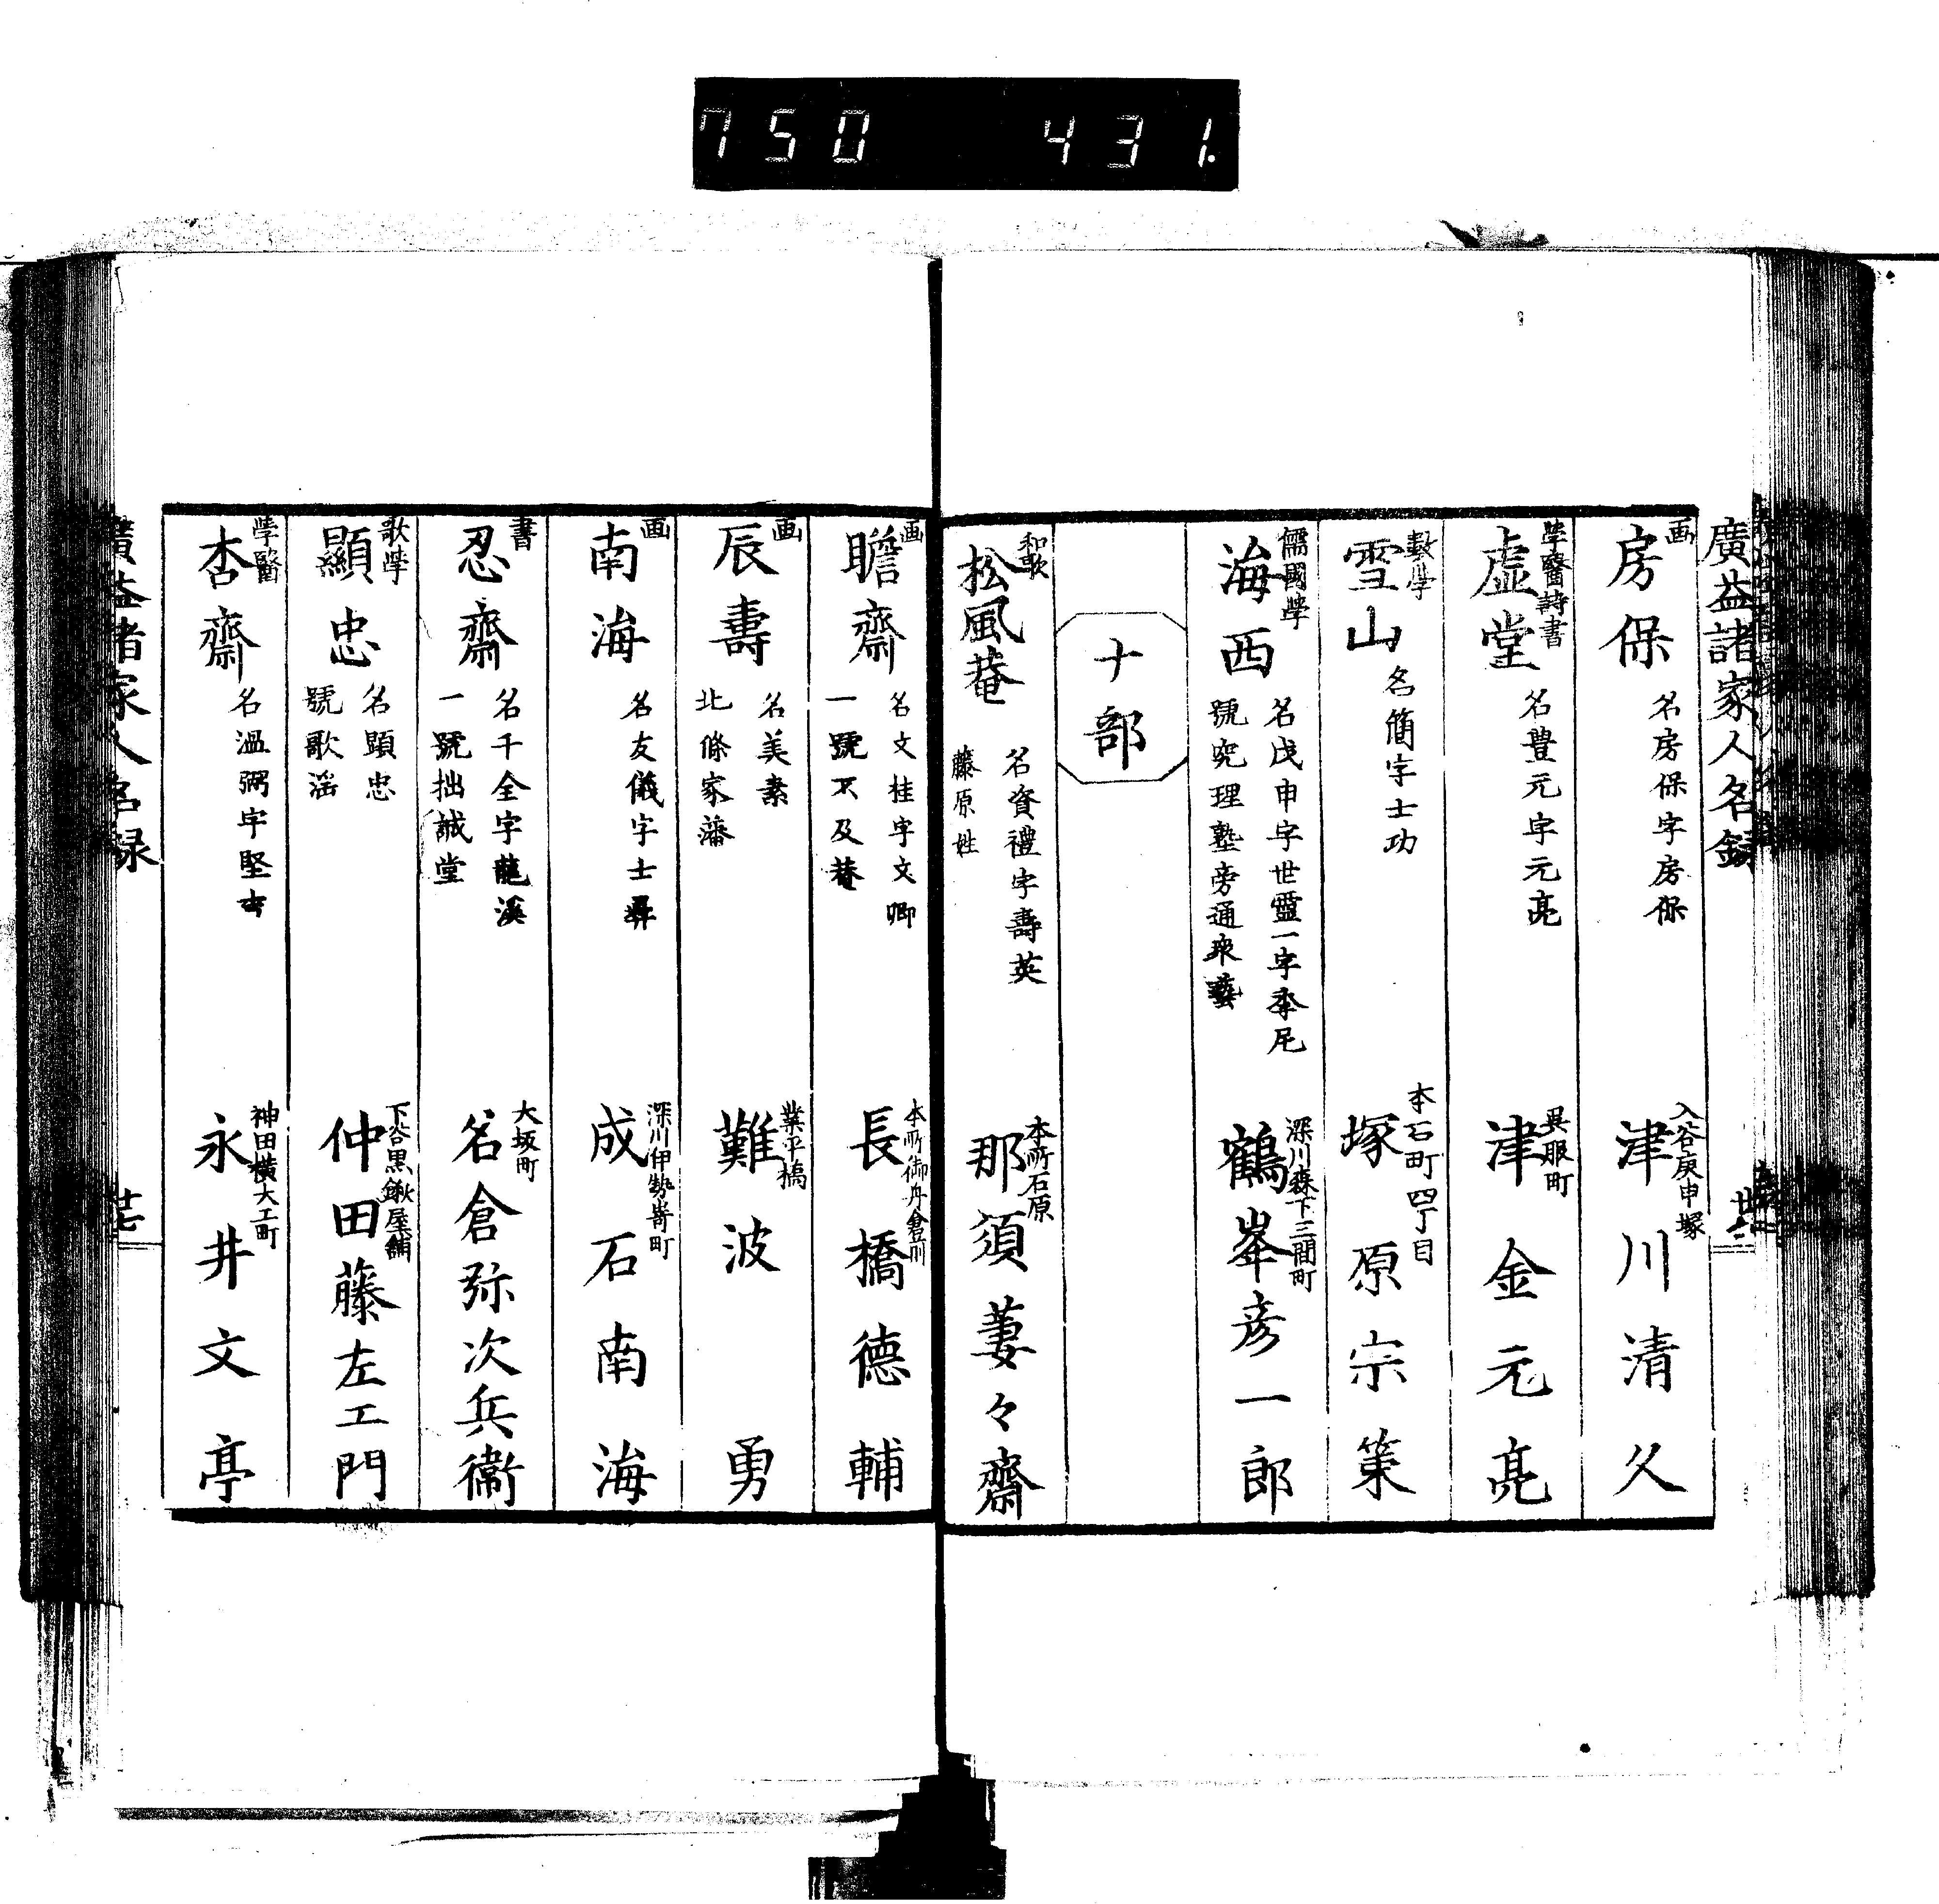 750 431.
廣益諸家人名録
画
房保
名房保字房保
入谷庚申塚
津川清久
學醫詩書
虚堂
名豊元字元亮
呉服町
津金元亮
數学
雪山
名簡字士功
本石町四丁目
塚原宗策
儒國學
海西
名戊申字世靈一字牽尾
號究理塾旁通衆藝
深川森下三間町
鶴峯彦一郎
ナ部
和歌
松風菴
名資禮字壽英
藤原姓
本所石原
那須萋々齋
画
瞻齋
名文桂字文卿
一號不及菴
本所御舟倉前
長橋德輔
画
辰壽
名美素
北條家藩
業平橋
難波勇
画
南海
名友儀字士彝
深川伊勢崎町
成石南海
書
忍齋
名千全字龍溪
一號拙誠堂
大坂町
名倉弥次兵衞
歌學
顯忠
名顕忠
號歌滛
下谷黒鍬屋舗
仲田藤左エ門
學醫
杏齋
名温弼字堅吉
神田横大工町
永井文亭
廣益諸家人名録
廿七